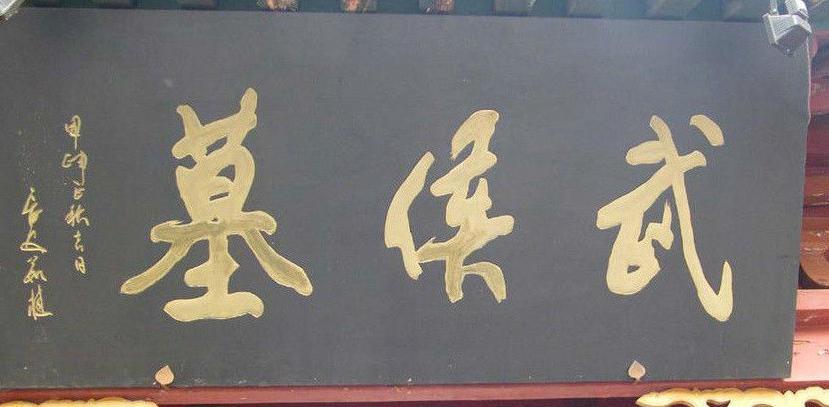 武侯墓
甲申正秋吉日